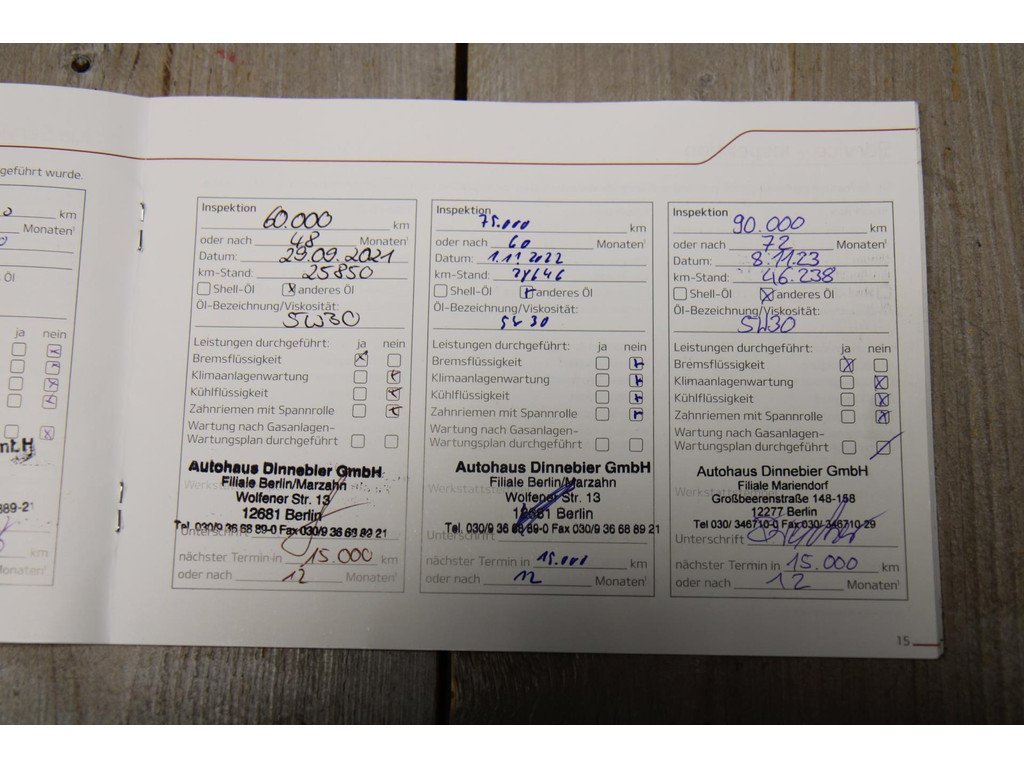 geführt wurde.
km
Monaten¹
Öl
ja nein
mbH
889-21
km
Monaten¹
Inspektion
60.000 km
oder nach 48 Monaten¹
Datum: 29.09.2021
km-Stand: 25850
Shell-Öl x anderes Öl
Öl-Bezeichnung/Viskosität:
5W30
Leistungen durchgeführt: ja nein
Bremsflüssigkeit x
Klimaanlagenwartung x
Kühlflüssigkeit x
Zahnriemen mit Spannrolle x
Wartung nach Gasanlagen-
Wartungsplan durchgeführt
Autohaus Dinnebier GmbH
Filiale Berlin/Marzahn
Wolfener Str. 13
12681 Berlin
Tel. 030/9 36 68 89-0 Fax 030/9 36 68 89 21
Unterschrift
nächster Termin in 15.000 km
oder nach 12 Monaten¹
Inspektion
75.000 km
oder nach 60 Monaten¹
Datum: 1.11.2022
km-Stand:
Shell-Öl x anderes Öl
Öl-Bezeichnung/Viskosität:
5W30
Leistungen durchgeführt: ja nein
Bremsflüssigkeit x
Klimaanlagenwartung x
Kühlflüssigkeit x
Zahnriemen mit Spannrolle x
Wartung nach Gasanlagen-
Wartungsplan durchgeführt
Autohaus Dinnebier GmbH
Filiale Berlin/Marzahn
Wolfener Str. 13
12681 Berlin
Tel. 030/9 36 68 89-0 Fax 030/9 36 68 89 21
Unterschrift
nächster Termin in 15.000 km
oder nach 12 Monaten¹
Inspektion
90.000 km
oder nach 72 Monaten¹
Datum: 8.11.23
km-Stand: 46.238
Shell-Öl x anderes Öl
Öl-Bezeichnung/Viskosität:
5W30
Leistungen durchgeführt: ja nein
Bremsflüssigkeit x
Klimaanlagenwartung x
Kühlflüssigkeit x
Zahnriemen mit Spannrolle x
Wartung nach Gasanlagen-
Wartungsplan durchgeführt
Autohaus Dinnebier GmbH
Filiale Mariendorf
Großbeerenstraße 148-158
12277 Berlin
Tel 030/ 346710-0 Fax 030/ 346710-29
Unterschrift
nächster Termin in 15.000 km
oder nach 12 Monaten¹
15